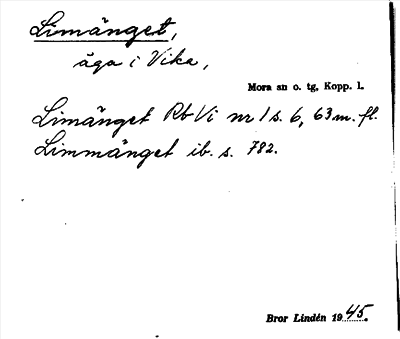 Limänget,
äga i Vika,
Mora sn o. tg, Kopp. l.
Limänget Rb Vi nr 1 s. 6, 63 m. fl.
Limmänget ib. s. 782.
Bror Lindén 1945.